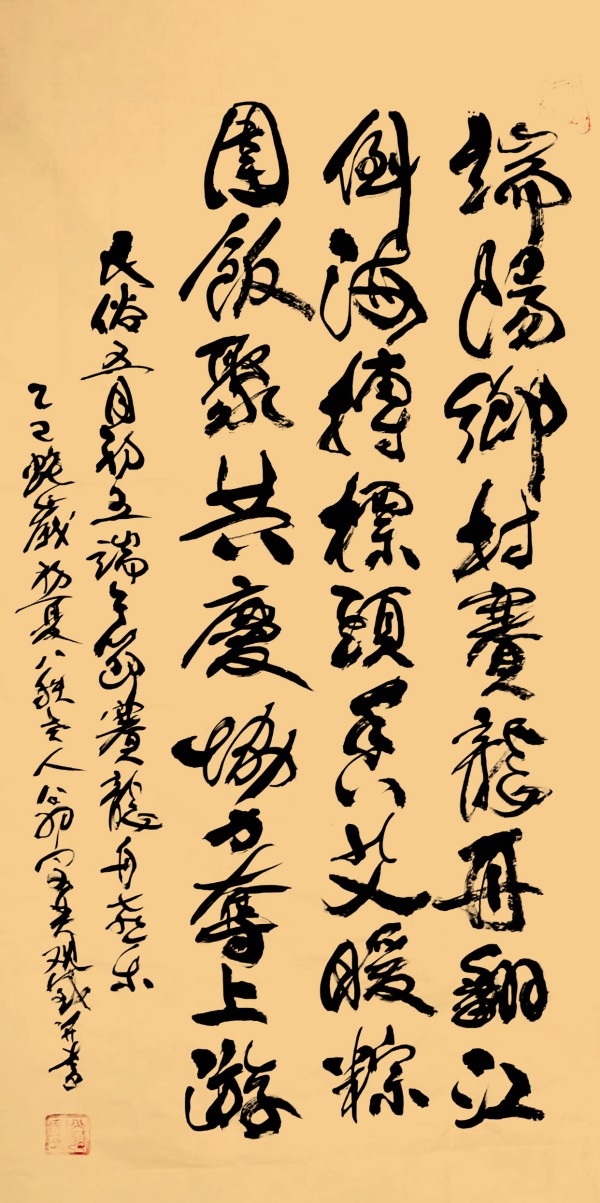 端陽鄉村賽龍舟翻江
倒海搏標頭香艾暖粽
團飯聚共慶協力奪上游
民俗五月初五端午節賽龍舟乐
乙巳蛇歲初夏八秩老人翁观战并書